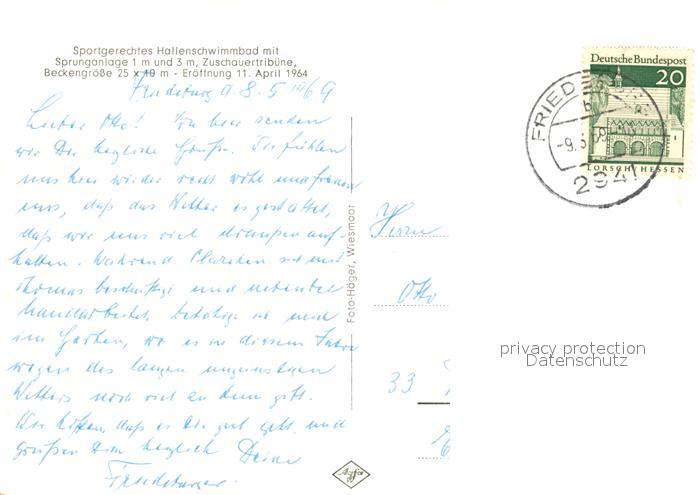 Sportgerechtes Hallenschwimmbad mit
Sprunganlage 1 m und 3 m, Zuschauertribüne,
Beckengröße 25 x 10 m - Eröffnung 11. April 1964
Friedeburg 8. 5. 69
Lieber Otto! Von hier senden
wir Dir herzliche Grüße. Wir fühlen
uns hier wieder recht wohl und freuen
uns, daß das Wetter es gestattet,
daß wir uns viel draußen auf-
halten. Während Clärchen sich mit
Thomas beschäftigt und nebenbei
handarbeitet, betätige ich mich
im Garten, wo es in diesem Jahre
wegen des langen ungünstigen
Wetters noch viel zu tun gibt.
Wir hoffen, daß es Dir gut geht und
grüßen Dich herzlich Deine
Friedeburger.
Foto-Häger, Wiesmoor
Agfa
Herrn
Otto
33
Deutsche Bundespost
20
LORSCH/HESSEN
FRIEDEBURG
b
-9.5.69
2941
privacy protection
Datenschutz